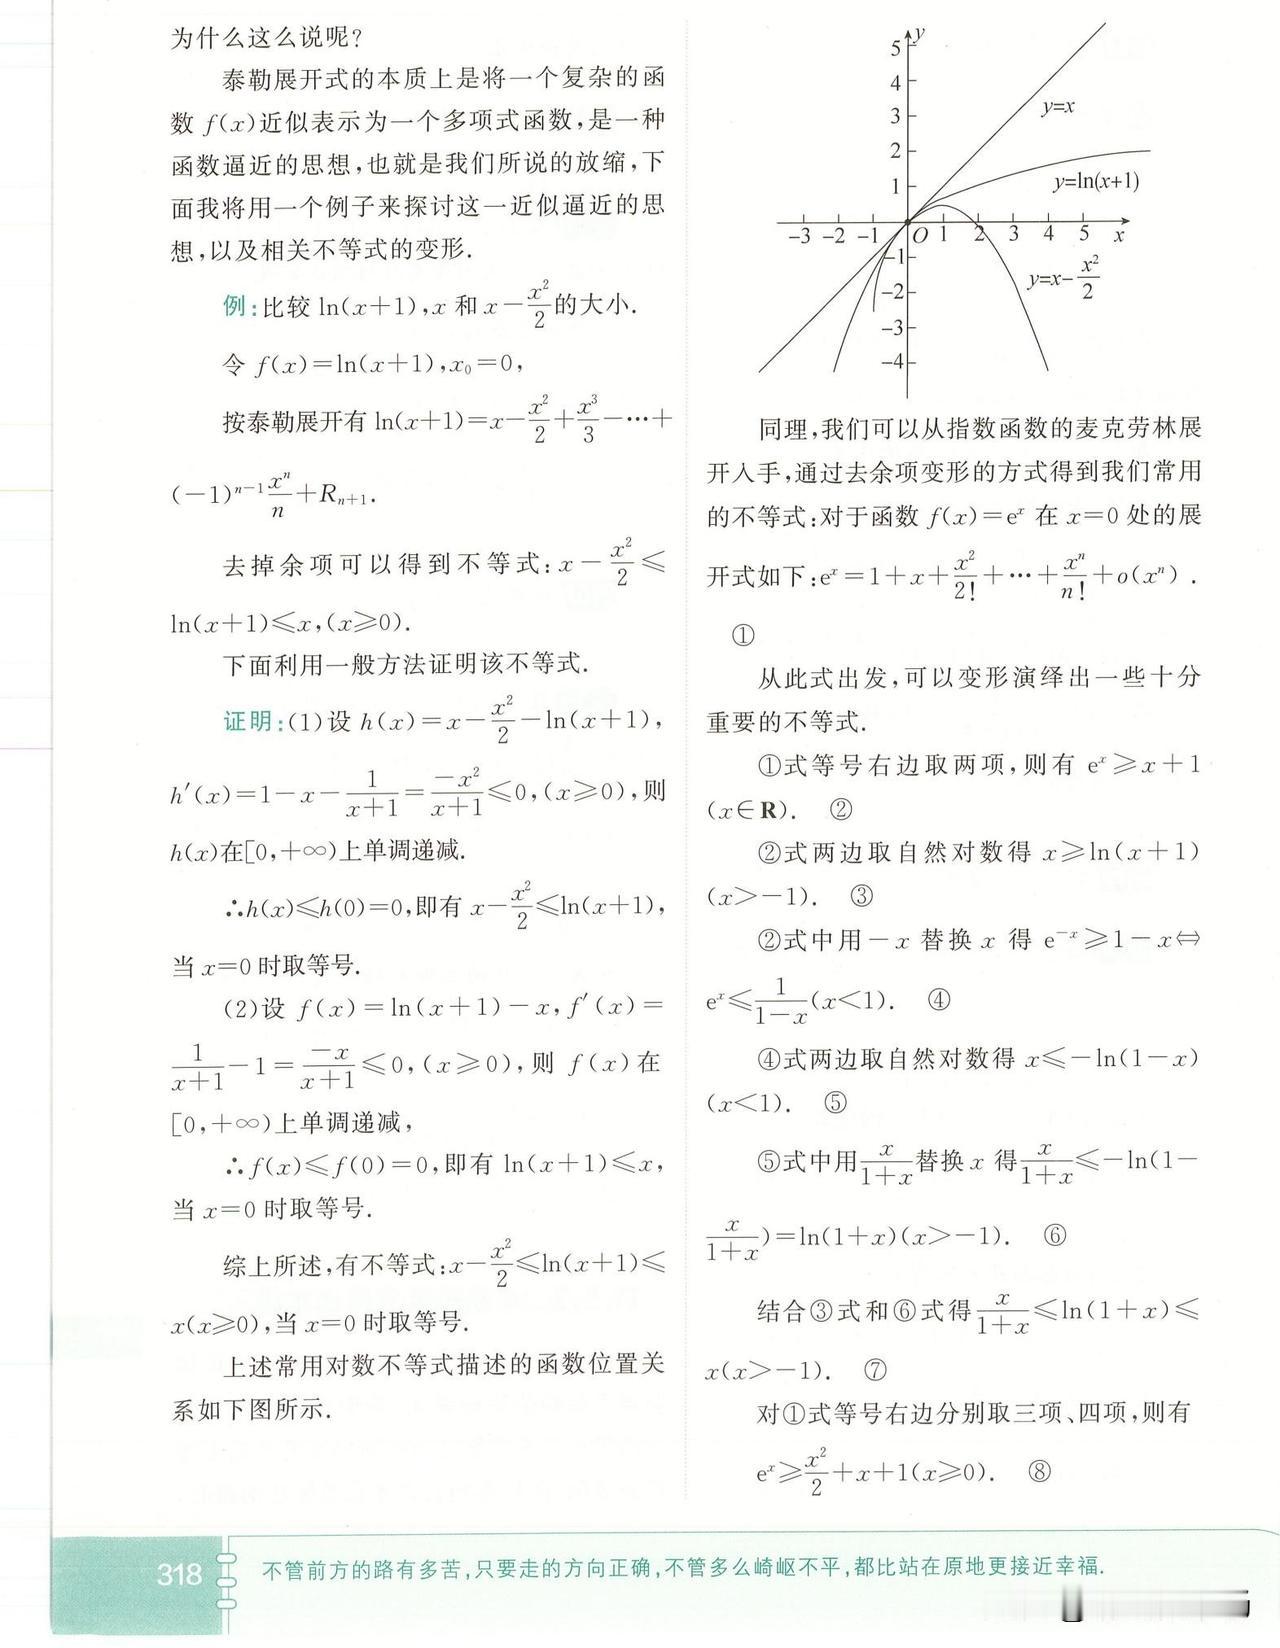 为什么这么说呢?
泰勒展开式的本质上是将一个复杂的函
数 f(x)近似表示为一个多项式函数,是一种
函数逼近的思想,也就是我们所说的放缩,下
面我将用一个例子来探讨这一近似逼近的思
想,以及相关不等式的变形.
例:比较 ln(x+1),x 和 x-x²/2的大小.
令 f(x)=ln(x+1),x₀=0,
按泰勒展开有 ln(x+1)=x-x²/2+x³/3-…+
(-1)ⁿ⁻¹xⁿ/n+Rₙ₊₁.
去掉余项可以得到不等式:x-x²/2≤
ln(x+1)≤x,(x≥0).
下面利用一般方法证明该不等式.
证明:(1)设 h(x)=x-x²/2-ln(x+1),
h′(x)=1-x-1/(x+1)=-x²/(x+1)≤0,(x≥0),则
h(x)在[0,+∞)上单调递减.
∴h(x)≤h(0)=0,即有 x-x²/2≤ln(x+1),
当 x=0 时取等号.
(2)设 f(x)=ln(x+1)-x,f′(x)=
1/(x+1)-1=-x/(x+1)≤0,(x≥0),则 f(x)在
[0,+∞)上单调递减,
∴f(x)≤f(0)=0,即有 ln(x+1)≤x,
当 x=0 时取等号.
综上所述,有不等式:x-x²/2≤ln(x+1)≤
x(x≥0),当 x=0 时取等号.
上述常用对数不等式描述的函数位置关
系如下图所示.
y
5
4
3
2
1
y=x
y=ln(x+1)
-3 -2 -1 O 1 2 3 4 5 x
-1
-2
-3
-4
y=x-x²/2
同理,我们可以从指数函数的麦克劳林展
开入手,通过去余项变形的方式得到我们常用
的不等式:对于函数 f(x)=eˣ 在 x=0 处的展
开式如下:eˣ=1+x+x²/2!+…+xⁿ/n!+o(xⁿ).
①
从此式出发,可以变形演绎出一些十分
重要的不等式.
①式等号右边取两项,则有 eˣ≥x+1
(x∈R). ②
②式两边取自然对数得 x≥ln(x+1)
(x>-1). ③
②式中用-x 替换 x 得 e⁻ˣ≥1-x⇔
eˣ≤1/(1-x)(x<1). ④
④式两边取自然对数得 x≤-ln(1-x)
(x<1). ⑤
⑤式中用x/(1+x)替换 x 得x/(1+x)≤-ln(1-
x/(1+x))=ln(1+x)(x>-1). ⑥
结合③式和⑥式得x/(1+x)≤ln(1+x)≤
x(x>-1). ⑦
对①式等号右边分别取三项、四项,则有
eˣ≥x²/2+x+1(x≥0). ⑧
318
不管前方的路有多苦,只要走的方向正确,不管多么崎岖不平,都比站在原地更接近幸福.